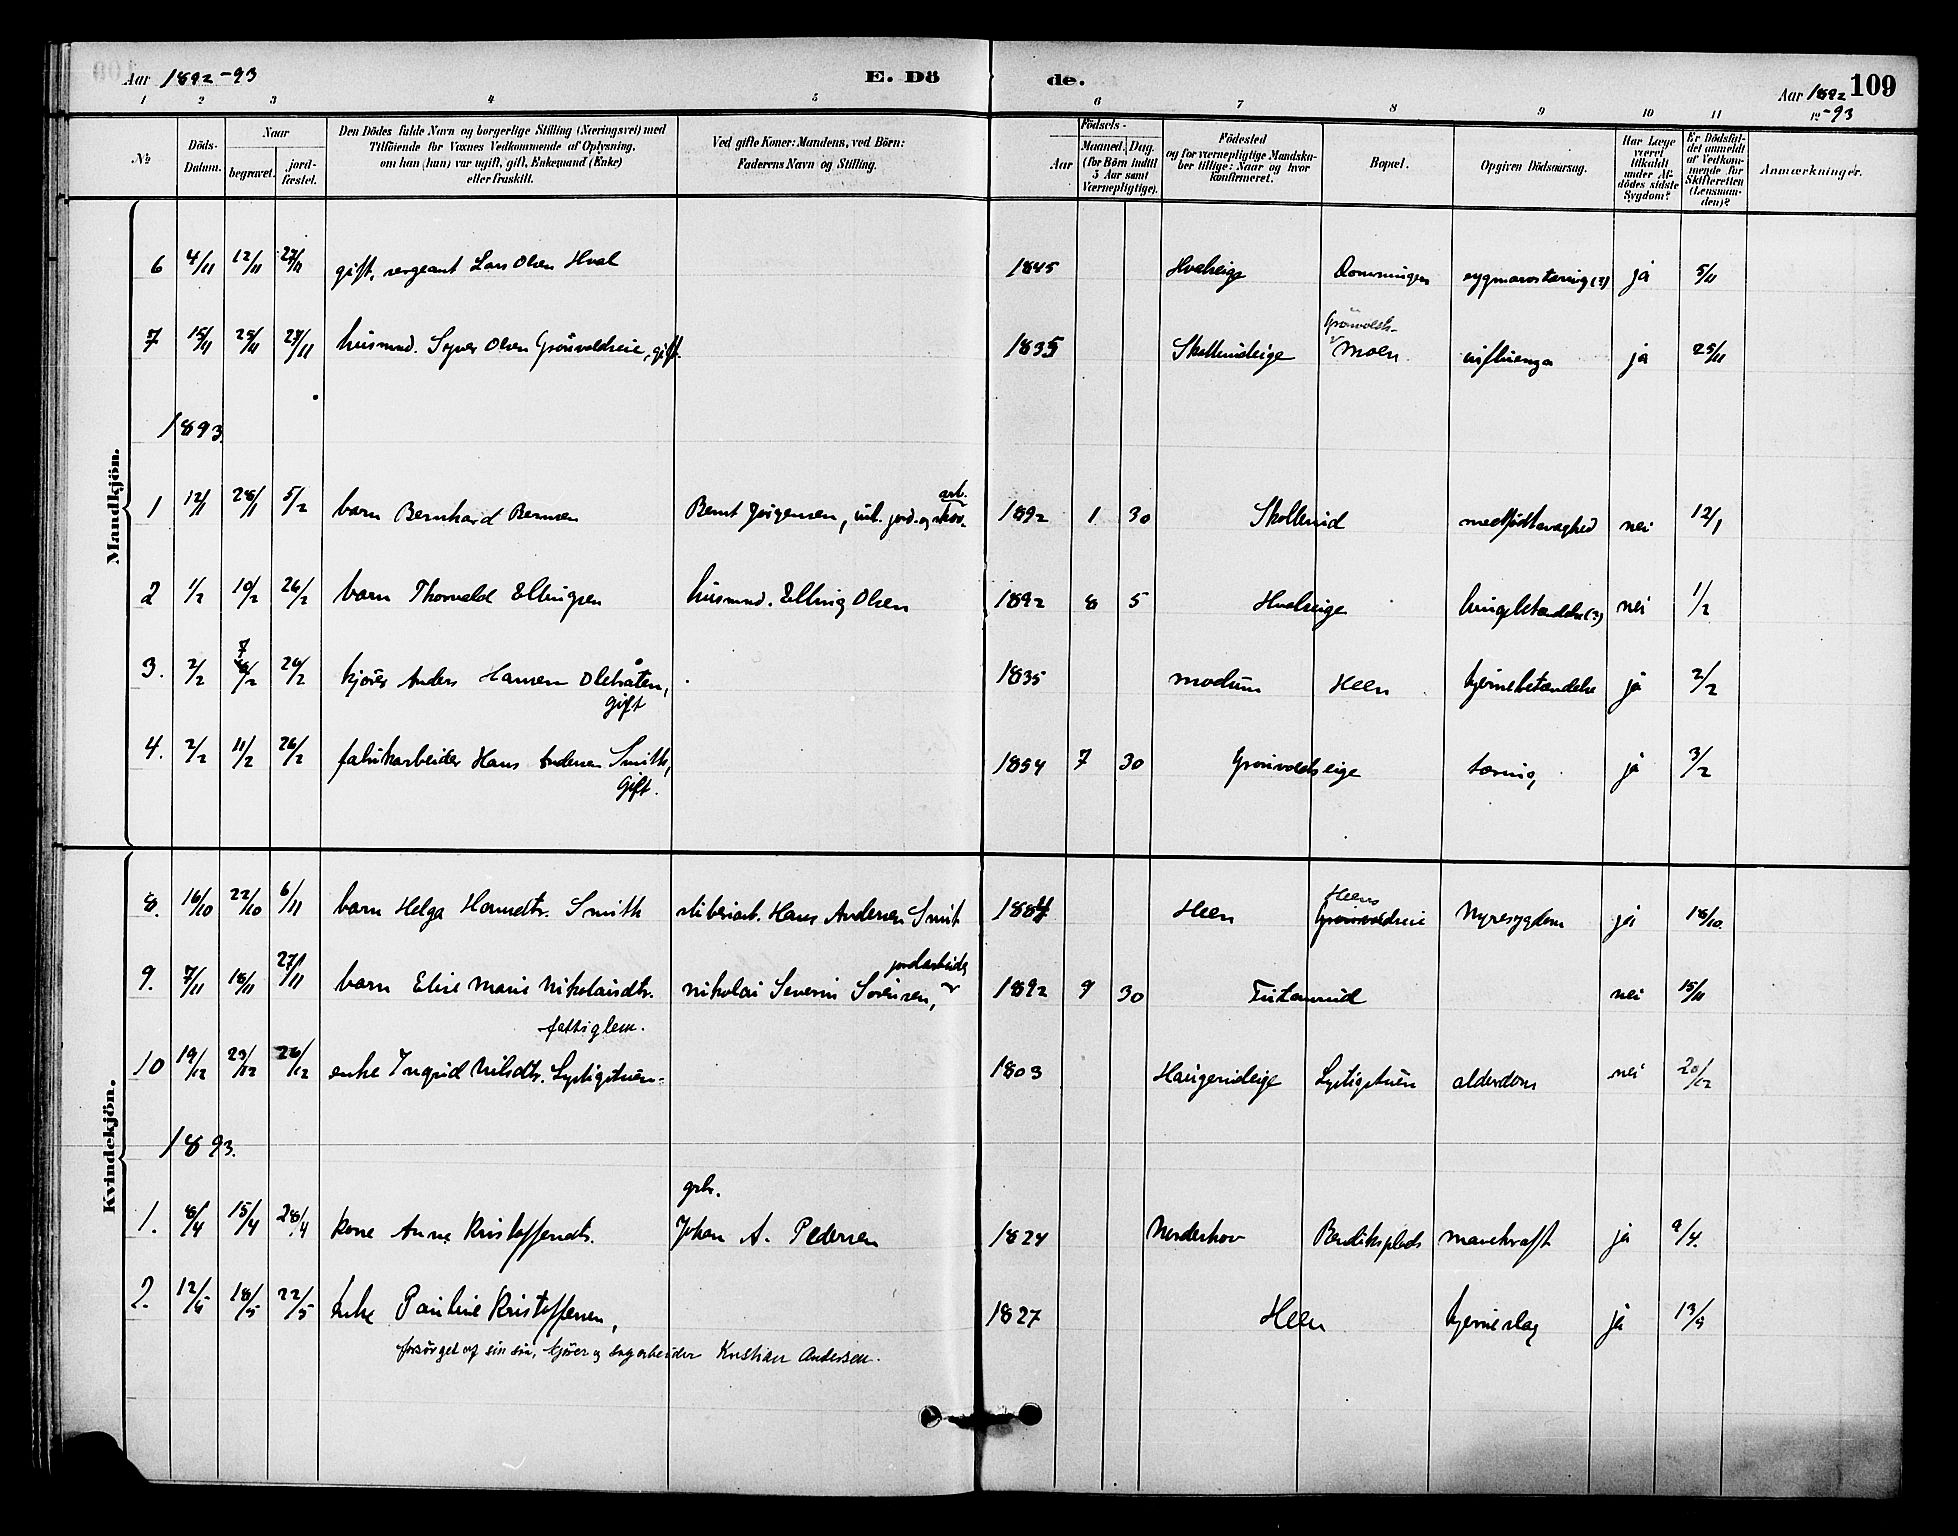 Aar 1892-93
E. Dö
de.
Aar 1892-93
109
1 2 3 4 5 6 7 8 9 10 11 12
№
Döds-Datum.
Naar
begravet.
jord-fæstet.
Den Dödes fulde Navn og borgerlige Stilling (Næringsvei) med
Tilföiende for Voxnes Vedkommende af Oplysning,
om han (hun) var ugift, gift, Enkemand (Enke)
eller fraskilt.
Ved gifte Koner: Mandens, ved Börn:
Faderens Navn og Stilling.
Födsels-
Aar
Maaned. Dag.
(for Börn indtil
5 Aar samt
Værnepligtige).
Födested
og for værnepligtige Mandska-
ber tillige: Naar og hvor
konfirmeret.
Bopæl.
Opgiven Dödsaarsag.
Har Læge
været
tilkaldt
under Af-
dödes sidste
Sygdom?
Er Dödsfal-
det anmeldt
af Vedkom-
mende for
Skifteretten
(Lensman-
den)?
Anmærkninger.
Mandkjön.
6 4/11 12/11 27/11 gift, sergeant Lars Olsen Hval 1845 Hvalseige ja 5/11
7 15/11 25/11 27/11 husmnd. Syver Olsen Grönvoldseie, gift. 1835 Skollerudeige Grönvolds-
Moen. influenza ja 25/11
1893
1 12/1 28/1 5/2 barn Bernhard Bernsen Bernt Jörgensen, jord- og skov-
arb. 1892 1 30 Skollerud medfödt svaghed nei 12/1
2 1/2 10/2 26/2 barn Thorvald Ellingsen husmnd. Elling Olsen 1892 8 5 Hvalseige lungebetændelse (?) nei 1/2
3. 2/2 7/2 26/2 kjörer Anders Hansen Olebråten,
gift 1835 modum Heen hjernebetændelse ja 2/2
4. 2/2 11/2 26/2 fabrikarbeider Hans Andersen Smith,
gift. 1854 7 30 Grönvoldseige tæring, ja 3/2
Kvindekjön.
8. 16/10 22/10 6/11 barn Helga Hansdtr. Smith sliberiarb. Hans Andersen Smit 1884 Heen Heens
Grönvoldseie Nyresygdom ja 18/10.
9. 7/11 18/11 27/11 barn Elise Marie Nikolaisdtr. nikolai Severin Sörensen, jordarbeider 1892 9 30 nei 15/11
fattiglem.
10 19/12 23/12 26/12 enke Ingrid Nilsdtr. Lystigstuen. 1803 Haugerudeige Lystigstuen alderdom nei 20/12
1893.
1. 8/4 15/4 28/4 kone Anne Kristoffersdtr. gbr.
Johan A. Pedersen 1824 Norderhov Bendiksplads mavekræft ja 9/4.
2. 12/5 18/5 22/5 Enke Pauline Kristoffersen, 1827 Heen hjerneslag ja 13/5
forsörget af sin sön, kjörer og sagarbeider Kristian Andersen.